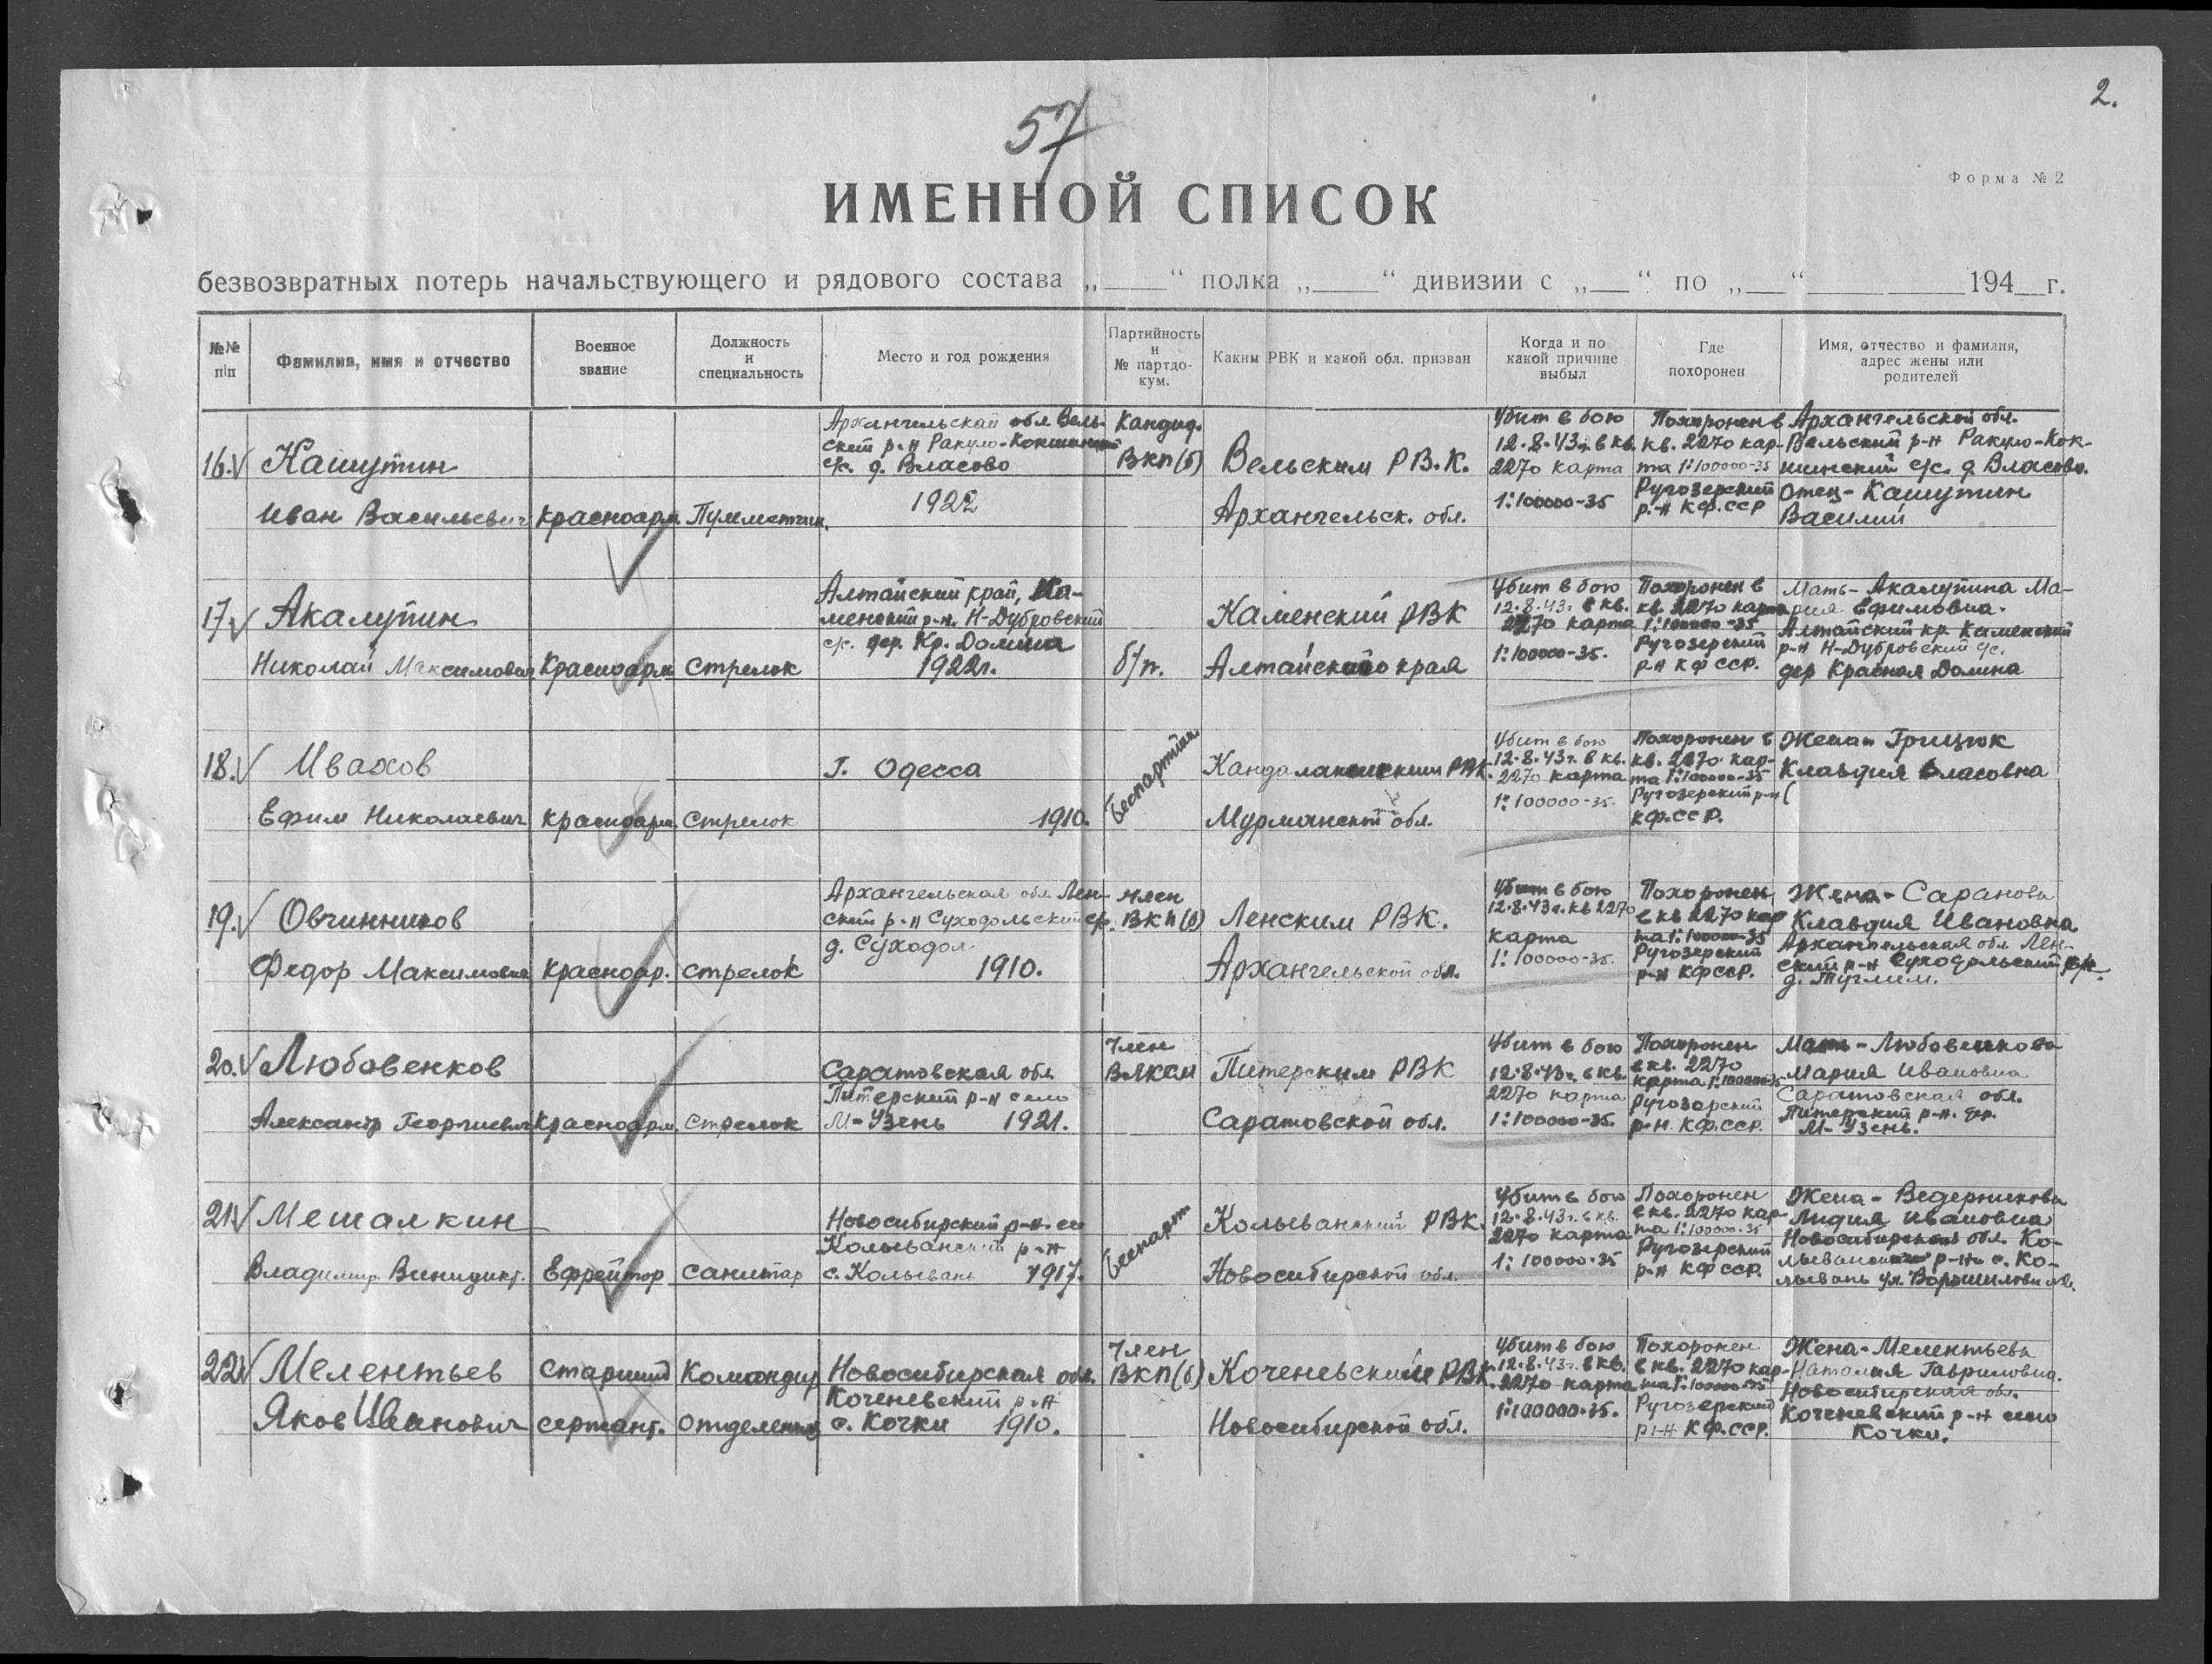 2.
57
Форма № 2
ИМЕННОЙ СПИСОК
безвозвратных потерь начальствующего и рядового состава „____“ полка „____“ дивизии с „___“ по „___“ ________ 194__г.
№№ п/п
Фамилия, имя и отчество
Военное звание
Должность и специальность
Место и год рождения
Партийность и № партдо-кум.
Каким РВК и какой обл. призван
Когда и по какой причине выбыл
Где похоронен
Имя, отчество и фамилия, адрес жены или родителей
16.
Кашутин
Иван Васильевич
Красноарм.
Пулеметчик.
Архангельской обл Вель-
ский р-н Ракуло-Кокшинский
с/с. д. Власово
1922
Кандид.
ВКП(б)
Вельским Р.В.К.
Архангельск. обл.
Убит в бою
12.8.43г. в кв.
2270 карта
1:100000-35
Похоронен в
кв. 2270 кар-
та 1:100000-35
Ругозерский
р-н КФ.ССР
Архангельской обл.
Вельский р-н Ракуло-Кок-
шинский с/с. д Власово.
Отец-Кашутин
Василий
17.
Акалутин
Николай Максимович
Красноарм.
Стрелок
Алтайский край, Ка-
менский р-н. Н-Дубровский
с/с. дер. Кр. Долина
1922г.
б/п.
Каменский РВК
Алтайского края
Убит в бою
12.8.43г. в кв.
2270 карта
1:100000-35.
Похоронен в
кв. 2270 карта
1:100000-35
Ругозерский
р-н КФ ССР.
Мать-Акалутина Ма-
рия Ефимовна.
Алтайский кр. Каменский
р-н Н-Дубровский с/с.
дер Красная Долина
18.
Ивахов
Ефим Николаевич
Красноарм.
Стрелок
г. Одесса
1910.
Беспартийн.
Кандалакшским РВК.
Мурманской обл.
Убит в бою
12.8.43г. в кв.
2270 карта
1:100000-35.
Похоронен в
кв. 2270 кар-
та 1:100000-35
Ругозерский р-н
КФ.ССР.
Жена Грицюк
Клавдия Власовна
19.
Овчинников
Федор Максимович
Красноар.
Стрелок
Архангельская обл. Лен-
ский р-н Суходольский с/с.
д. Суходол
1910.
Член
ВКП(б)
Ленским РВК.
Архангельской обл.
Убит в бою
12.8.43г. кв 2270
карта
1:100000-35.
Похоронен
в кв 2270 кар
та 1:100000-35
Ругозерский
р-н КФССР.
Жена-Саранова
Клавдия Ивановна
Архангельская обл. Лен-
ский р-н Суходольский с/с.
д. Туглим.
20.
Любовенков
Александр Георгиевич
Красноарм.
Стрелок
Саратовская обл
Питерский р-н село
М-Узень 1921.
Член
ВЛКСМ
Питерским РВК
Саратовской обл.
Убит в бою
12.8.43г. в кв.
2270 карта
1:100000-35.
Похоронен
в кв. 2270
карта 1:100000-35
Ругозерский
р-н. КФ.ССР.
Мать-Любовенкова
Мария Ивановна
Саратовская обл.
Питерский р-н. дер.
М-Узень.
21.
Мешалкин
Владимир Винидикт.
Ефрейтор
Санитар
Новосибирский
Колыванский р-н
с. Колывань 1917.
Беспарт
Колыванский РВК.
Новосибирской обл.
Убит в бою
12.8.43г. в кв.
2270 карта
1:100000-35
Похоронен
в кв. 2270 кар-
та 1:100000-35
Ругозерский
р-н КФ ССР.
Жена-Ведерникова
Лидия Ивановна
Новосибирской обл. Ко-
лыванского р-на с. Ко-
лывань ул. Ворошилова
22.
Мелентьев
Яков Иванович
Старший
сержант.
Командир
отделения
Новосибирская обл.
Коченевский р-н
с. Кочки 1910.
Член
ВКП(б)
Коченевским РВК.
Новосибирской обл.
Убит в бою
12.8.43г. в кв.
2270 карта
1:100000-35.
Похоронен
в кв. 2270 кар-
та 1:100000-35
Ругозерский
р-н КФ.ССР.
Жена-Мелентьева
Наталия Гавриловна.
Новосибирская обл.
Коченевский р-н село
Кочки.